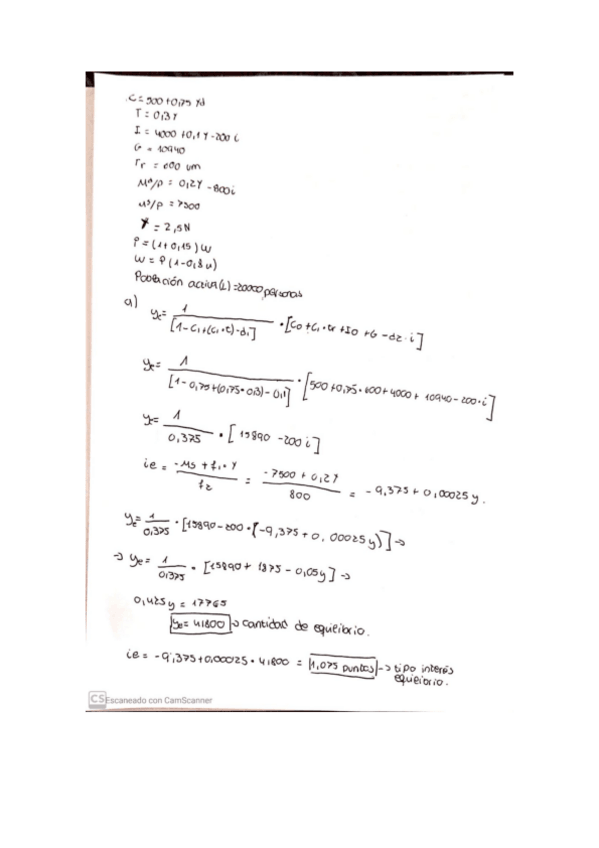 C = 500 + 0,75 Yd
T = 0,3 Y
I = 4000 + 0,1 Y - 200 i
G = 10940
Tr = 600 um
Mᵈ/P = 0,2Y - 800i
Mˢ/P = 7500
Y = 2,5N
P = (1 + 0,15) W
W = P (1 - 0,8 u)
Población activa (L) = 20000 personas
a) ye = 1 / [1 - C1 + (C1 · t) - d1] · [C0 + C1 · tr + I0 + G - d2 · i]
ye = 1 / [1 - 0,75 + (0,75 · 0,3) - 0,1] · [500 + 0,75 · 600 + 4000 + 10940 - 200 · i]
ye = 1 / 0,375 · [15890 - 200 i]
ie = -Ms + f1 · Y / f2 = -7500 + 0,2Y / 800 = -9,375 + 0,00025 y.
ye = 1 / 0,375 · [15890 - 200 · (-9,375 + 0,00025 y)] →
→ ye = 1 / 0,375 · [15890 + 1875 - 0,05y] →
0,425y = 17765
ye = 41800 → cantidad de equilibrio.
ie = -9,375 + 0,00025 · 41800 = 1,075 puntos → tipo interés
equilibrio.
CS Escaneado con CamScanner